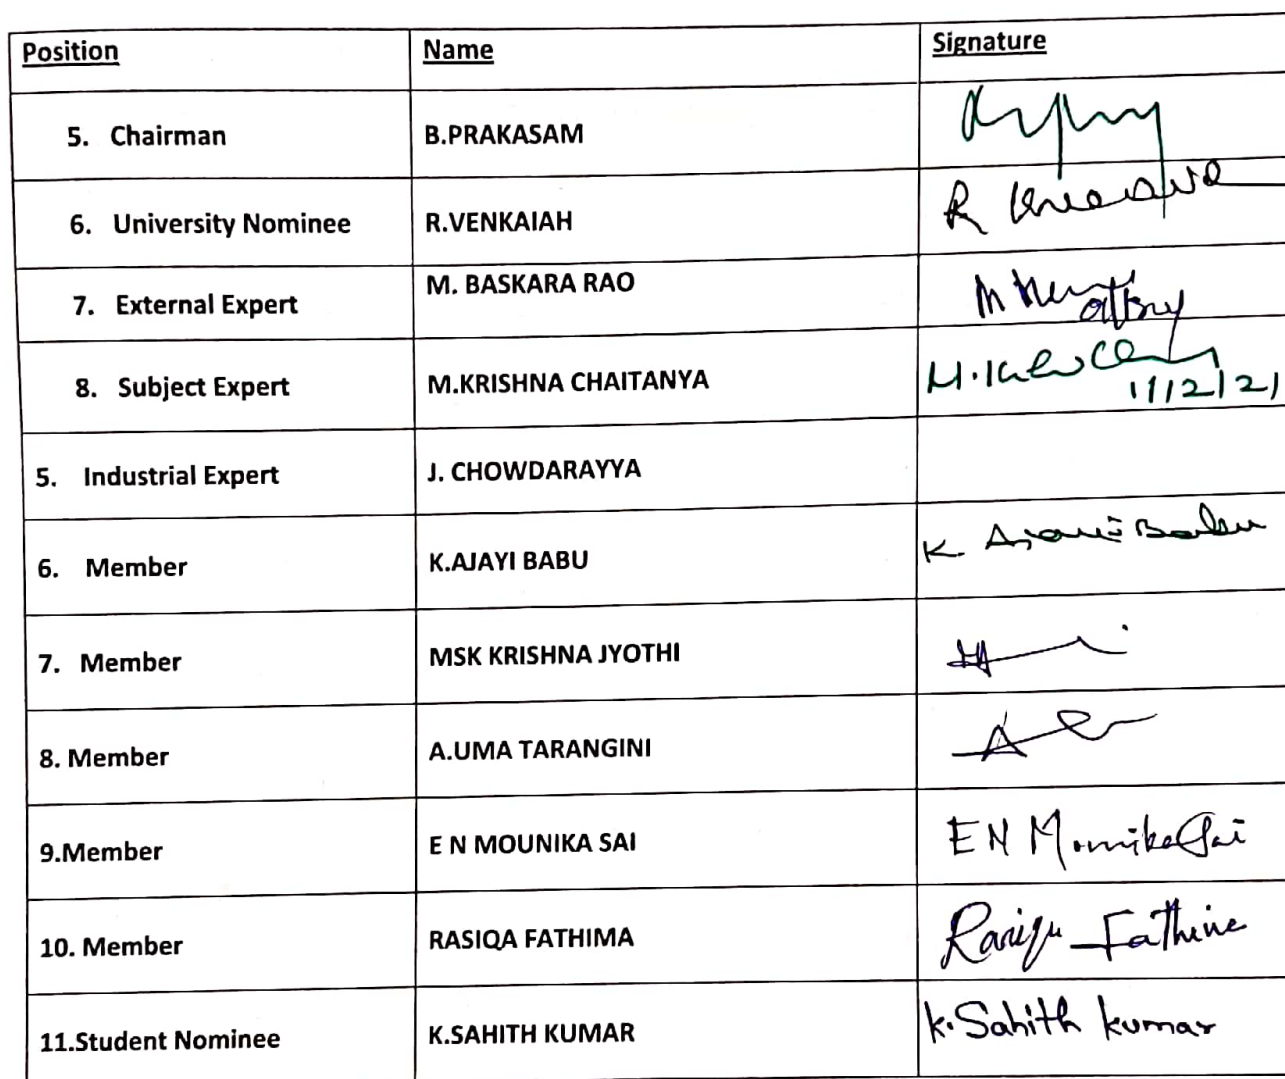 Position Name Signature
5. Chairman B.PRAKASAM
6. University Nominee R.VENKAIAH R
7. External Expert M. BASKARA RAO M
8. Subject Expert M.KRISHNA CHAITANYA M.
11/2/21
5. Industrial Expert J. CHOWDARAYYA
6. Member K.AJAYI BABU K Ajayi Babu
7. Member MSK KRISHNA JYOTHI
8. Member A.UMA TARANGINI A
9.Member E N MOUNIKA SAI E N Mounika Sai
10. Member RASIQA FATHIMA Rasiqa Fathima
11.Student Nominee K.SAHITH KUMAR K. Sahith kumar